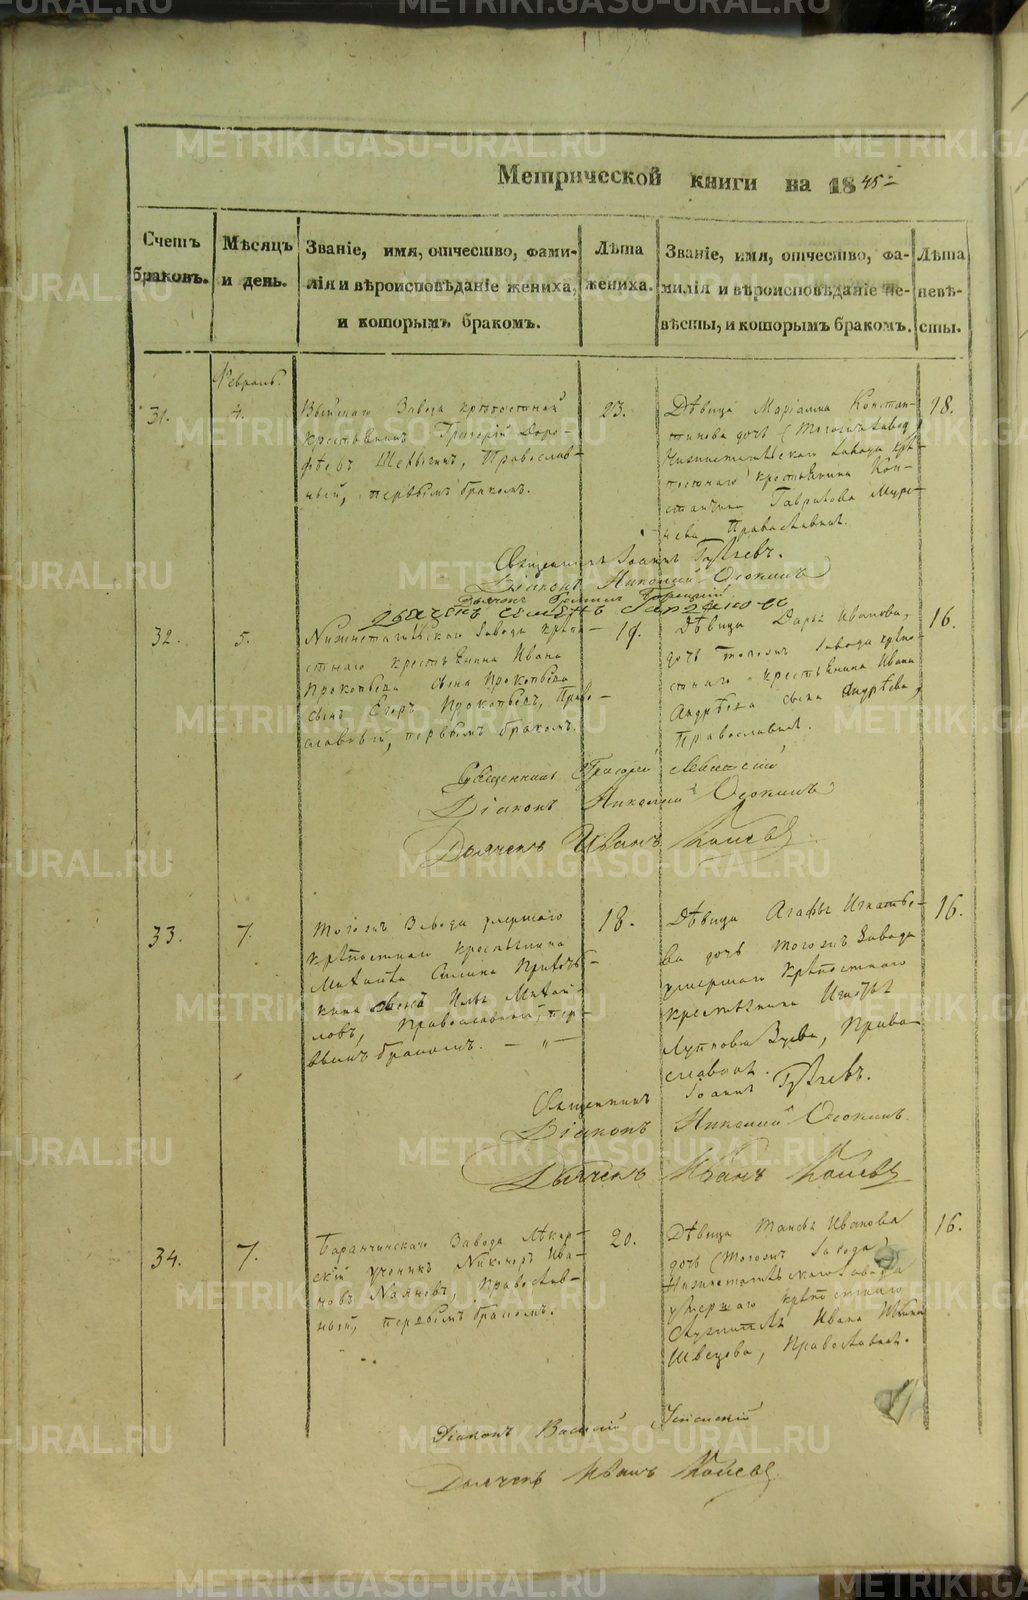 Метрической книги на 1845
Счетъ браковъ.
Мѣсяцъ и день.
Званіе, имя, отчество, фами-
лія и вѣроисповѣданіе жениха,
и которымъ бракомъ.
Лѣта
жениха.
Званіе, имя, отчество, фа-
милія и вѣроисповѣданіе не-
вѣсты, и которымъ бракомъ.
Лѣта
невѣ-
сты.
31.
4.
Выйскаго Завода крѣпостной
крестьянинъ Григорій Доро-
фѣевъ Православ-
ный, первымъ бракомъ.
23.
Дѣвица Констан-
тинова дочь (Тогожъ Завода)
Нижнетагильскаго Завода крѣ-
постнаго крестьянина Кон-
стантина Гаврилова
Православная.
18.
Священникъ Іоаннъ
Діаконъ Николай Осокинъ
32.
5.
Нижнетагильскаго Завода крѣпо-
стнаго крестьянина Ивана
Прокопьева сына Прокопьева
сынъ Егоръ Прокопьевъ, Право-
славный, первымъ бракомъ.
19.
Дѣвица Дарья Иванова,
дочь тогожъ завода крѣпо-
стнаго крестьянина Ивана
Андрѣева сына Андрѣева,
Православная.
16.
Священникъ Григорій
Діаконъ Николай Осокинъ
Дьячекъ Иванъ
33.
7.
Тогожъ Завода умершаго
крѣпостнаго крестьянина
Михаила
сынъ Илья Михай-
ловъ, Православный, пер-
вымъ бракомъ. — „ —
18.
Дѣвица Агафья Игнатье-
ва дочь тогожъ Завода
умершаго крѣпостнаго
крестьянина Игнатья
Зуева, Право-
славная.
16.
Священникъ Іоаннъ
Діаконъ Николай Осокинъ.
Дьячекъ Иванъ
34.
7.
Баранчинскаго Завода Лѣкар-
скій ученикъ Никаноръ Ива-
новъ Православ-
ный, первымъ бракомъ.
20.
Дѣвица Таисья Иванова
дочь (Тогожъ Завода)
Нижнетагильскаго Завода
умершаго крѣпостнаго
служителя Ивана
Швецова, Православная.
16.
Діаконъ Василій Успенскій
Дьячекъ Иванъ
METRIKI.GASO-URAL.RU